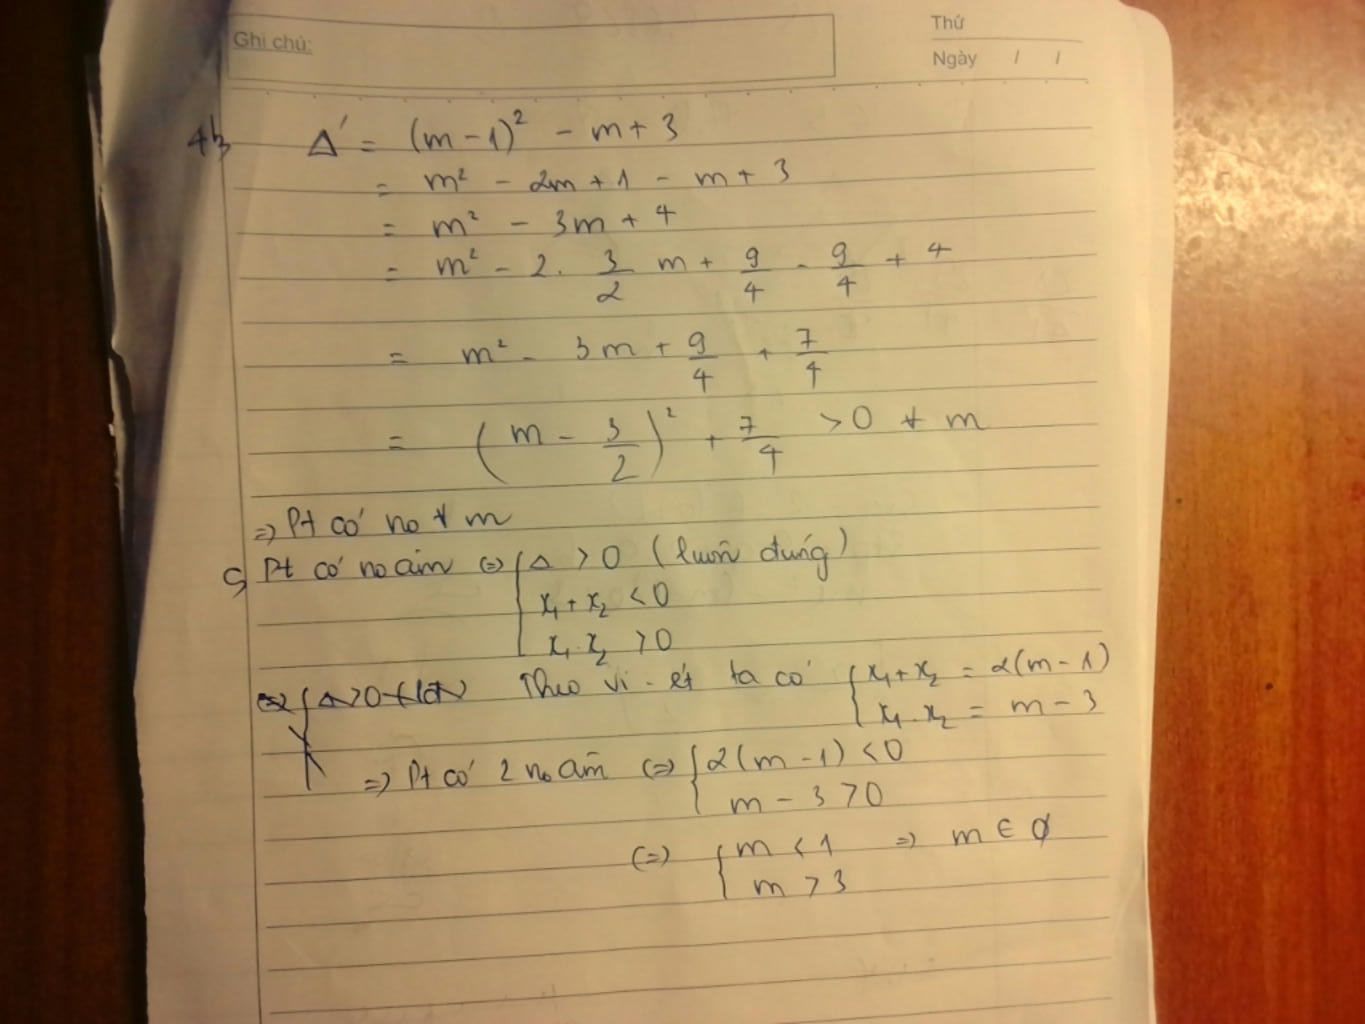 Ghi chú:
Thứ
Ngày / /
4b Δ' = (m - 1)² - m + 3
= m² - 2m + 1 - m + 3
= m² - 3m + 4
= m² - 2. 3/2 m + 9/4 - 9/4 + 4
= m² - 3m + 9/4 + 7/4
= (m - 3/2)² + 7/4 > 0 ∀ m
=> Pt có no ∀ m
c, Pt có no âm <=> { Δ > 0 (luôn đúng)
x₁ + x₂ < 0
x₁. x₂ > 0
Theo vi-ét ta có { x₁ + x₂ = 2(m - 1)
x₁. x₂ = m - 3
=> Pt có 2 no âm (=> { 2(m - 1) < 0
m - 3 > 0
(=) { m < 1 => m ∈ ∅
m > 3